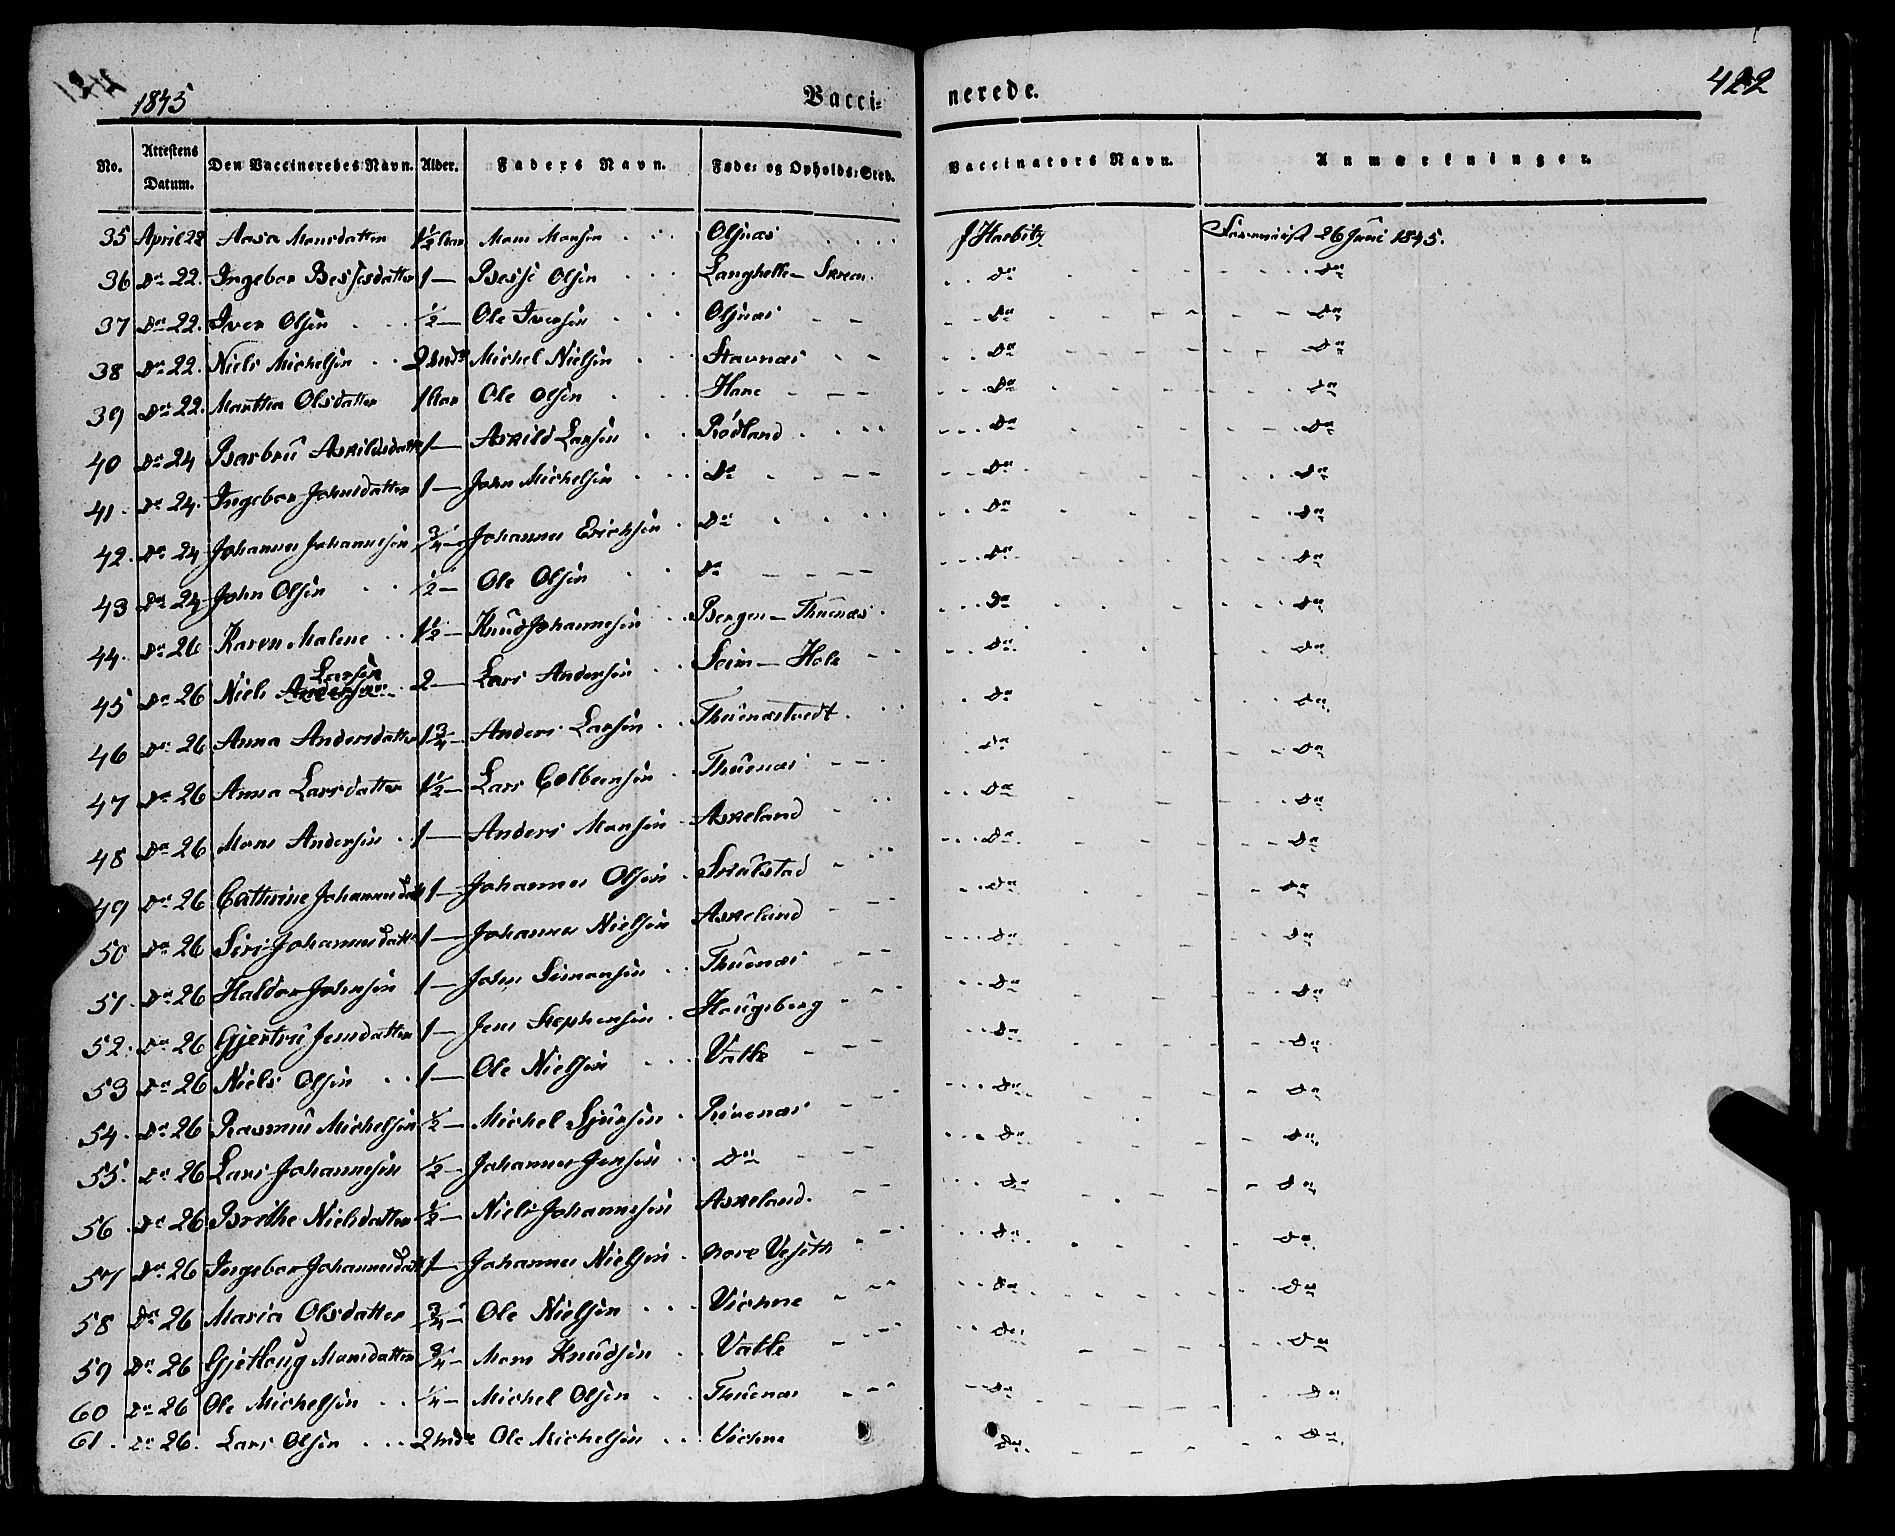 1845 Vaccinerede. 422
No. Attestens Datum. Den Vaccineredes Navn. Alder. Faders Navn. Føde- og Opholds-Sted. Vaccinators Navn. Anmærkninger.
35 April 22 Aasa Monsdatter 1½ Aar Mons Monsen Olsnæs J Harbitz 26 Juni 1845.
36 Do 22. Ingebor Bessesdatter 1 — Besse Olsen Langhelle — Do Do
37 Do 22. Iver Olsen ½ — Ole Iversen Olsnæs Do Do
38 Do 22. Niels Michelsen 2 Michel Nielsen Stavnæs Do Do
39 Do 22. Martha Olsdatter 1 Aar Ole Olsen Hane Do Do
40 Do 24 Barbru Askildsdatter 1 — Askild Larsen Rødland Do Do
41. Do 24. Ingebor Johnsdatter 1 — John Michelsen Do Do Do
42. Do 24 Johannes Johannesen ¾ — Johannes Erichsen Do Do Do
43 Do 24 John Olsen ½ — Ole Olsen Do Do Do
44. Do 26 Karen Malene 1½ — Knud Johannesen Bergen — Thuenæs Do Do
45 Do 26 Niels Larsen 2 — Lars Andersen Seim — Hole Do Do
46 Do 26 Anna Andersdatter 1¾ — Anders Larsen Thuenæstvedt Do Do
47 Do 26 Anna Larsdatter 1½ — Lars Colbensen Thuenæs Do Do
48 Do 26 Mons Andersen 1 — Anders Monsen Askeland Do Do
49 Do 26 Cathrine Johannesdatt 1 — Johannes Olsen Do Do
50 Do 26 Siri Johannesdatt 1 — Johannes Nielsen Askeland Do Do
51. Do 26 Haldor Johnsen 1 — John Simonsen Thuenæs Do Do
52. Do 26 Gjertru Jensdatter 1 — Jens Stephensen Haugsberg Do Do
53 Do 26 Niels Olsen 1 — Ole Nielsen Vatle Do Do
54. Do 26 Rasmus Michelsen ½ — Michel Sjursen Do Do
55. Do 26 Lars Johannesen ½ — Johannes Jensen Do Do Do
56. Do 26 Brithe Nielsdatter ½ — Niels Johannesen Askeland. Do Do
57 Do 26 Ingebor Johannesdatt 1 — Johannes Nielsen Do Do
58 Do 26 Maria Olsdatter ¾ — Ole Nielsen Vichne Do Do
59 Do 26 Monsdatter ¾ — Mons Knudsen Vatle Do Do
60 Do 26 Ole Michelsen ¼ — Michel Olsen Thuenæs Do Do
61. Do 26. Lars Olsen 2 Ole Michelsen Vichne Do Do